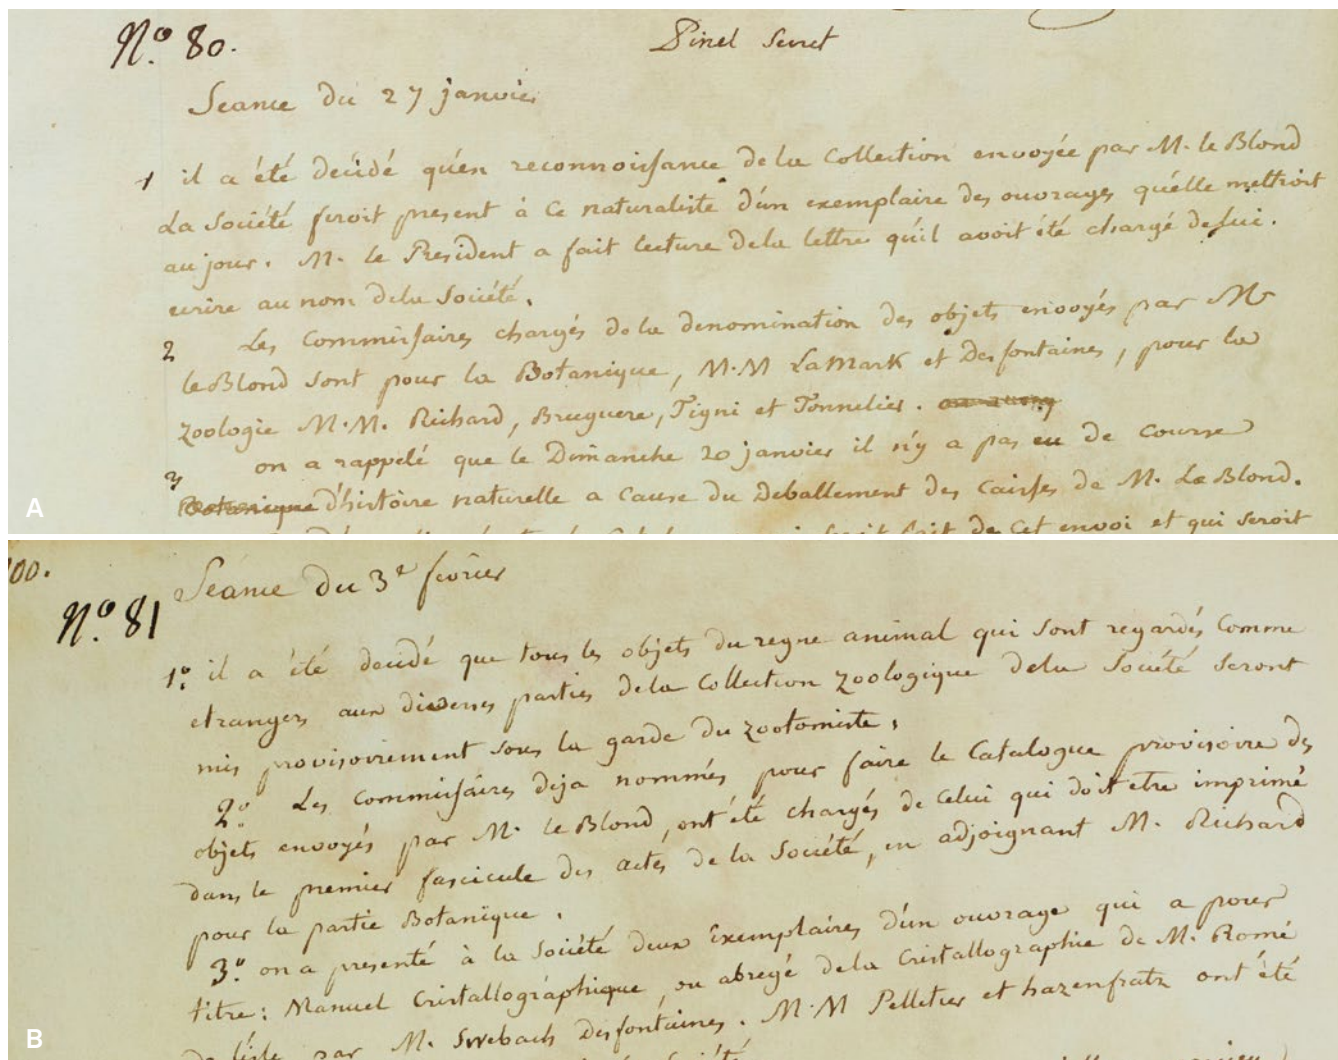 Nº. 80.
Pinel Secret
Seance du 27 janvier
1 il a été decidé qu'en reconnoissance de la Collection envoyée par M. le Blond
La Société feroit present à Ce naturaliste d'un exemplaire des ouvrages qu'elle mettroit
au jour. M. le President a fait lecture de la lettre qu'il avoit été chargé de lui.
ecrire au nom de la Société.
2 Les Commissaires chargés de la denomination des objets envoyés par Mr
le Blond sont pour la Botanique, M.M LaMark et Desfontaines, pour la
zoologie M.M. Richard, Bruguere, Tigni et Tonnelier.
3 on a rappelé que le Dimanche 20 janvier il n'y a pas eu de course
Botanique d'histoire naturelle a Cause du Deballement des Caisses de M. Le Blond.
fait de Cet envoi et qui seroit
A
100.
Nº. 81
Séance du 3e fevrier
1º. il a été decidé que tous les objets du regne animal qui sont regardés Comme
etrangers aux diverses parties de la Collection zoologique de la Société seront
mis provisoirement sous la garde du zootomiste.
2º. Les Commissaires deja nommés pour faire le Catalogue provisoire des
objets envoyés par M. le Blond, ont été chargés de Celui qui doit etre imprimé
dans le premier fascicule des actes de la Société, en adjoignant M. Richard
pour la partie Botanique.
3º. on a presenté à la Société deux Exemplaires d'un ouvrage qui a pour
titre: Manuel Cristallographique, ou abregé de la Cristallographie de M. Romé
de lisle par M. Swebach desfontaines. M.M Pelletier et hazenfratz ont été
B